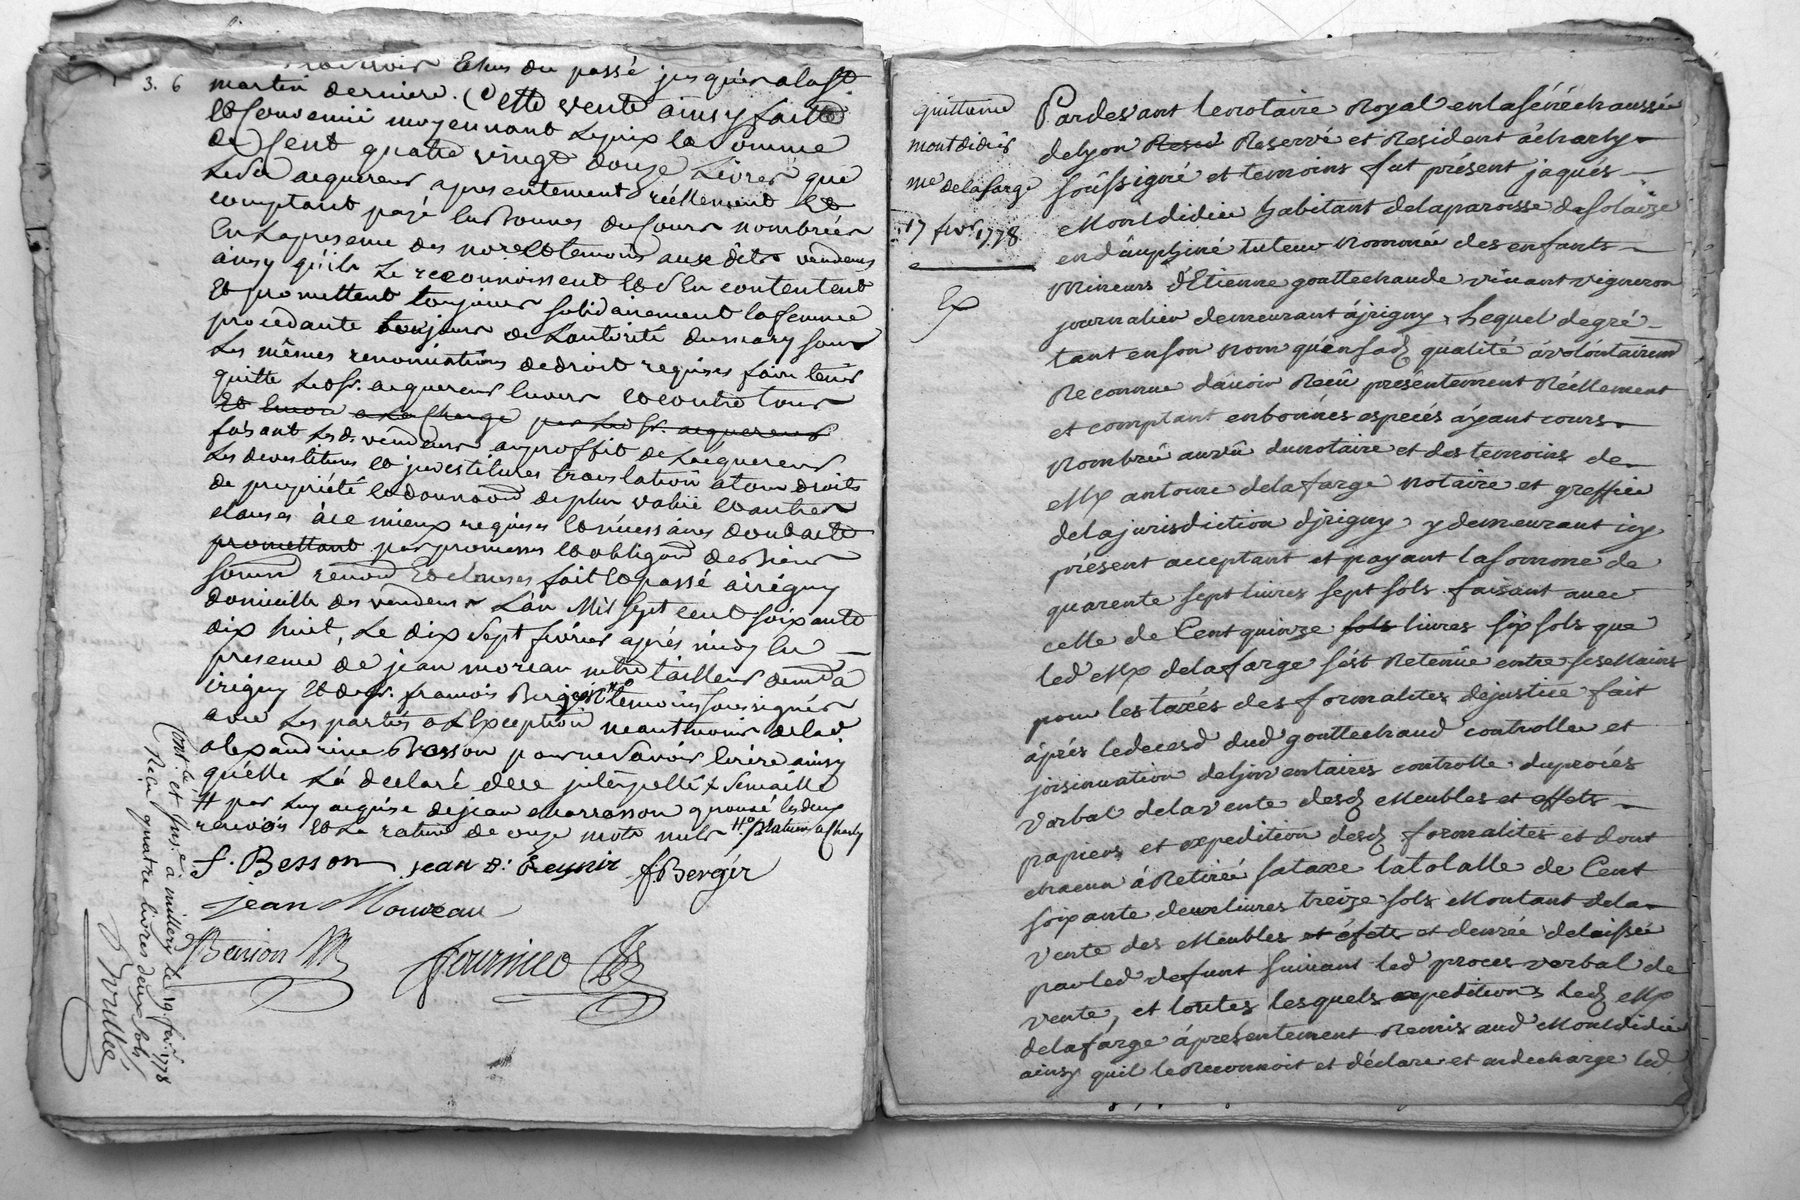 3. 6
Echus du passé jusques a la st.
martin derniere. Cette vente ainsy faitte
et Convenüe moyennant Le prix la Somme
de Cent quatre vingt douze Livres que
Led. sr. acquereur a presentement réellement et
comptant payé en Bonnes du Cours nombrées
En La presence des no.re et temoins auxd. vendeurs
ainsy qu'ils Le reconnoissent et s'En contentent
et promettent toujours solidairement la femme
procedante toujours de L'autorité du mary sous
Les mêmes renonciations de droit requises faire tenir
quitte Led. sr. acquereur Envers et contre tous
faisant Les d. vendeurs au proffit de L'acquereur
Les devestitures et jnvestitures translation a tous droits
de propriété et donnaon de plus value et autres
clauses à ce mieux requises et nécessaires dont acte
promettant par promesses et obligaon de Biens
soumon renon et clauses fait et passé à irigny
domicille des vendeurs L'an Mil Sept cent soixante
dix huit, Le dix Sept fevrier après midy En
presence de jean moreau me tailleur demt à
irigny et de sr. françois Bergér temoins soussignés
avec Les parties a L'Exception neantmoins de lad.
alexandrine Besson pour ne savoir Ecrire ainsy
qu'elle L'a déclaré de ce jnterpellée
par Luy acquise de jean
renvois et La rature de onze mots nuls
f. Besson jean f. Bergér
jean Moureau
Besson
fournier
Cont.lé et Ins.é à millery Le 19 fev.r 1778
Reçu quatre livres deux sols
quittance
montdidier
me delafarge
17 fevr. 1778
Ex
Pardevant le notaire Royal en la sénéchaussée
de lyon Reservé et Resident à charly
soussigné et temoins fut présent jaqués
Montdidier habitant de la paroisse de solaize
en dauphiné tuteur nommée des enfants
mineurs d'Etienne gouttechaude vivant vigneron
journalier demeurant à jrigny, Lequel de gré
tant en son nom qu'en sad. qualité à volontairemt
Reconnue d'avoir Reçû présentement Réellement
et comptant en bonnes especés ayant cours
Nombré au vû du notaire et des temoins de
Me antoine delafarge notaire et greffier
de la jurisdiction d'jrigny, y demeurant icy
présent acceptant et payant la somme de
quarente sept livres sept sols faisant avec
celle de Cent quinze sols livres six sols que
led. Me delafarge s'est Retenüe entre ses Mains
pour les taxés des formalités de justice fait
après le decesd dud. gouttechaud controlle et
jnsinuation de l'jnventaires controlle du procés
verbal de la vente desd. Meubles et effets
papiers et expedition desd. formalités et dont
chacun à Retiré sa taxe la totalle de Cent
soixante deux livres treize sols Montant de la
vente des Meubles et éfets et denrée delaissée
par led. defunt suivant led. proces verbal de
vente, et toutes lesquels expeditions led. Me
delafarge à presentement Remis aud. Montdidier
ainsy qu'il le Reconnoit et déclare et en decharge led.